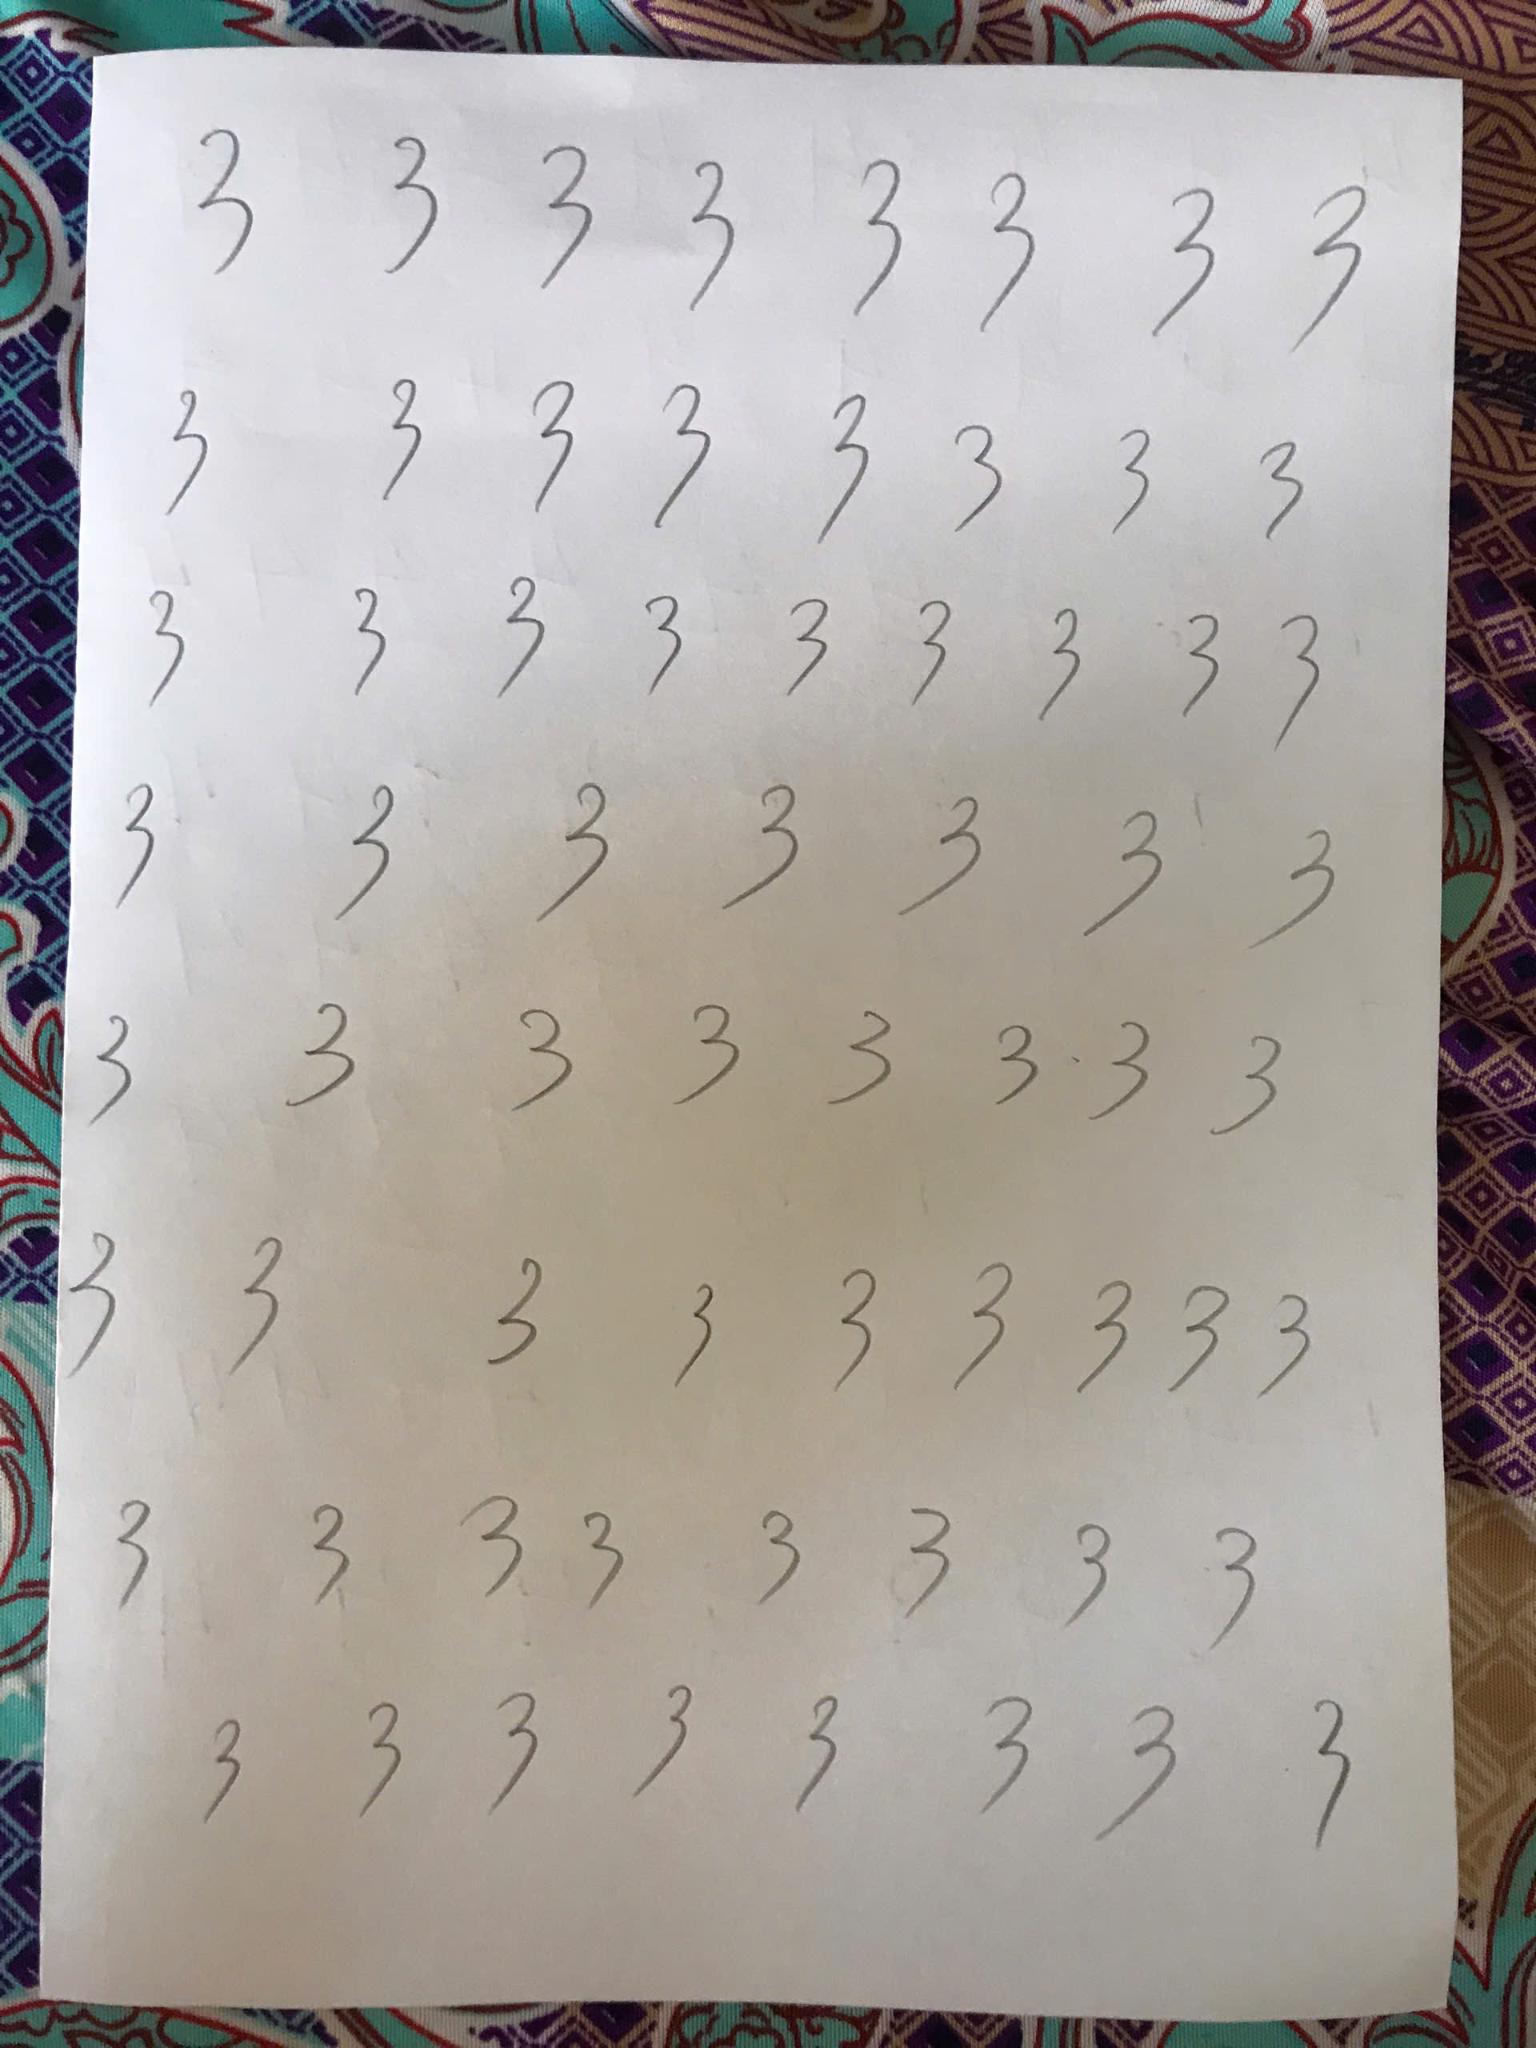 3 3 3 3 3 3 3 3
3 3 3 3 3 3 3 3
3 3 3 3 3 3 3 3 3
3 3 3 3 3 3 3
3 3 3 3 3 3 3 3
3 3 3 3 3 3 3 3 3
3 3 3 3 3 3 3 3
3 3 3 3 3 3 3 3